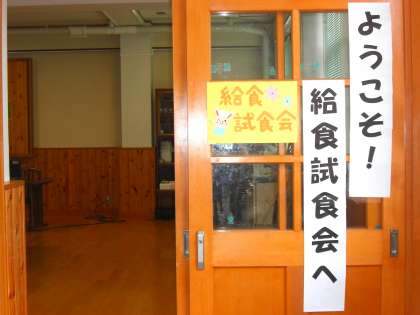 ようこそ!
給食試食会へ
給食
試食会